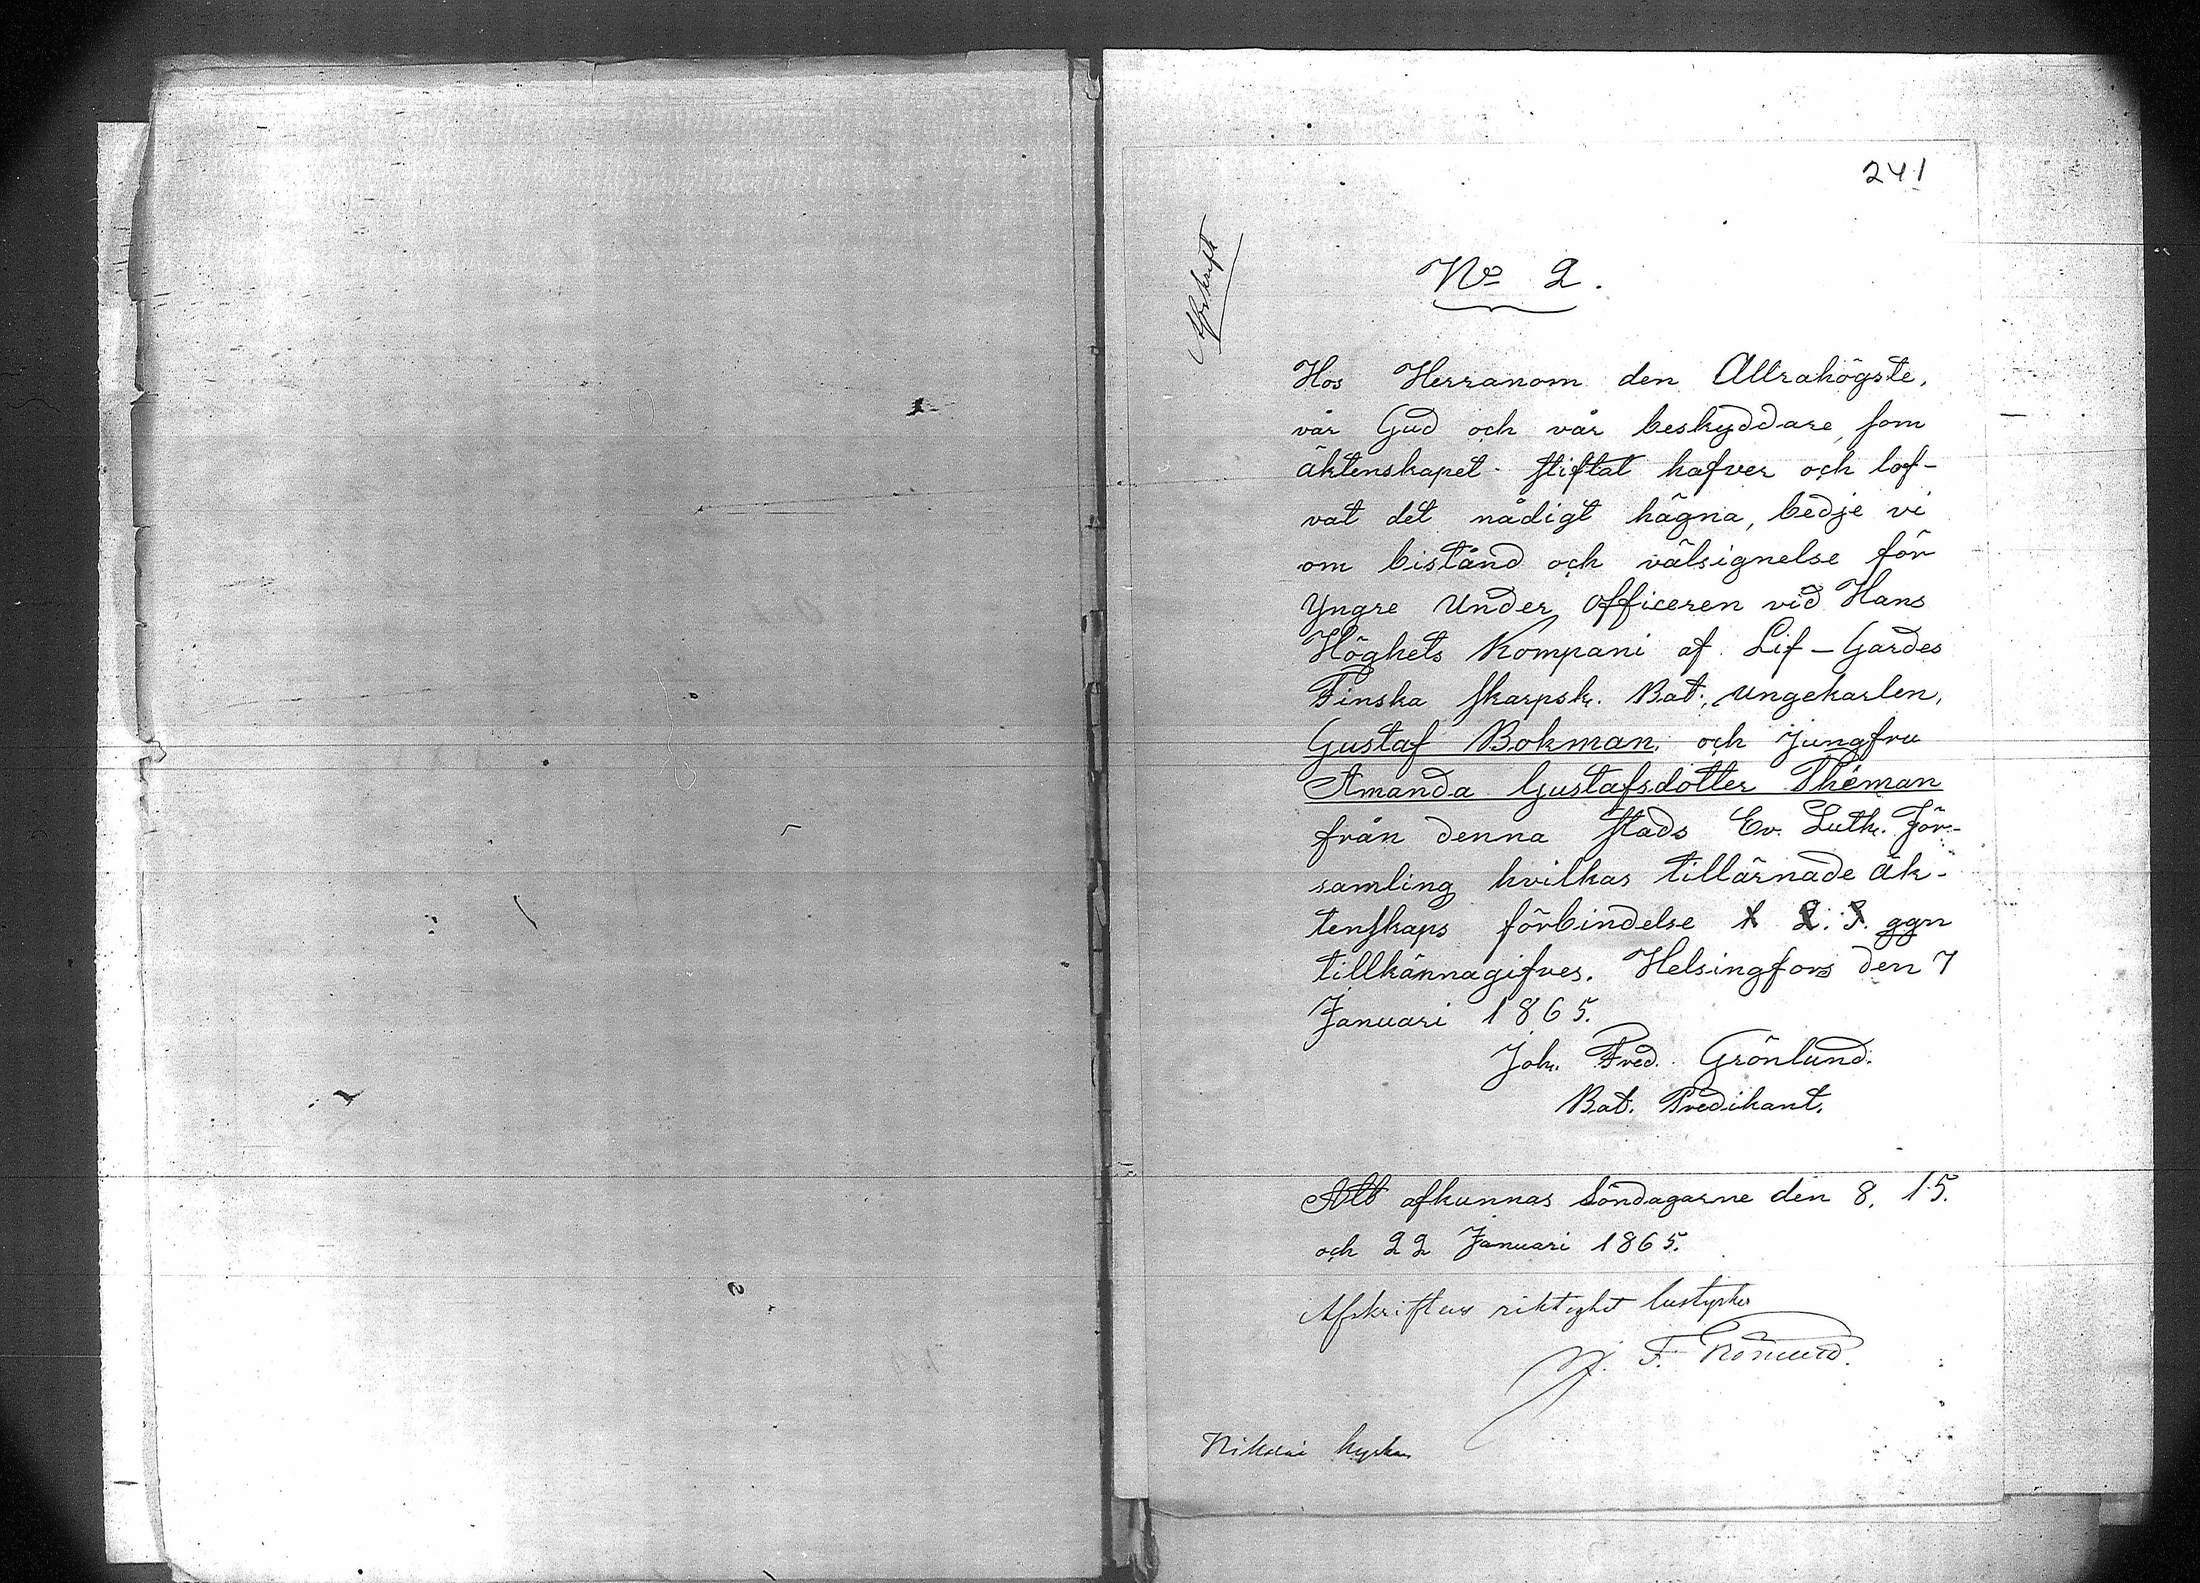 241
Afskrift
No 2.
Hos Herranom den Allrahögste,
vår Gud och vår beskyddare, som
äktenskapet stiftat hafver och lof-
vat det nådigt hägna, bedje vi
om bistånd och välsignelse för
Yngre Under officeren vid Hans
Höghets Kompani af Lif-Gardes
Finska skarpsk. Bat., ungekarlen,
Gustaf Bokman, och jungfru
Amanda Gustafsdotter Théman
från denna stads Ev. Luth. För-
samling hvilkas tillärnade äk-
tenskaps förbindelse 1 2. 3. ggn
tillkännagifves. Helsingfors den 7
Januari 1865.
Joh. Fred. Grönlund.
Bat. Predikant.
Att afkunnas Söndagarne den 8, 15.
och 22 Januari 1865.
Afskriftens riktighet bestyrker
J. F. Grönlund.
Nikolai kyrkan